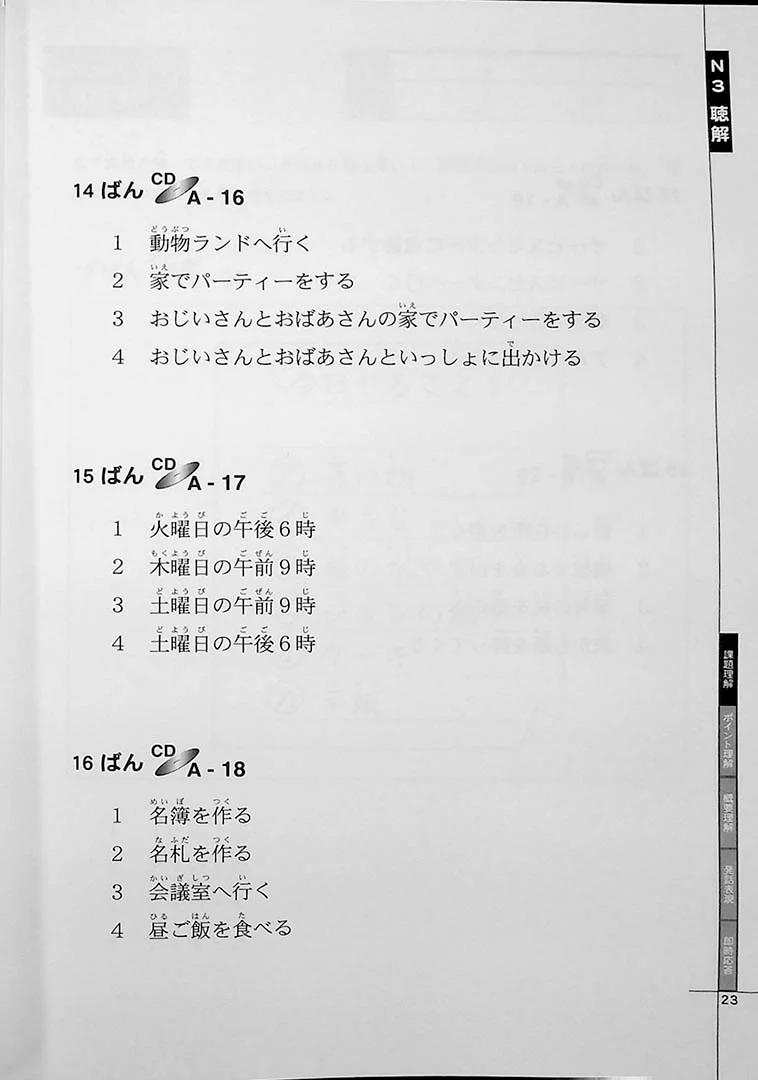 N3 聴解
14 ばん CD A - 16
1 動物ランドへ行く
2 家でパーティーをする
3 おじいさんとおばあさんの家でパーティーをする
4 おじいさんとおばあさんといっしょに出かける
15 ばん CD A - 17
1 火曜日の午後6時
2 木曜日の午前9時
3 土曜日の午前9時
4 土曜日の午後6時
16 ばん CD A - 18
1 名簿を作る
2 名札を作る
3 会議室へ行く
4 昼ご飯を食べる
課題理解
ポイント理解
概要理解
発話表現
即時応答
23